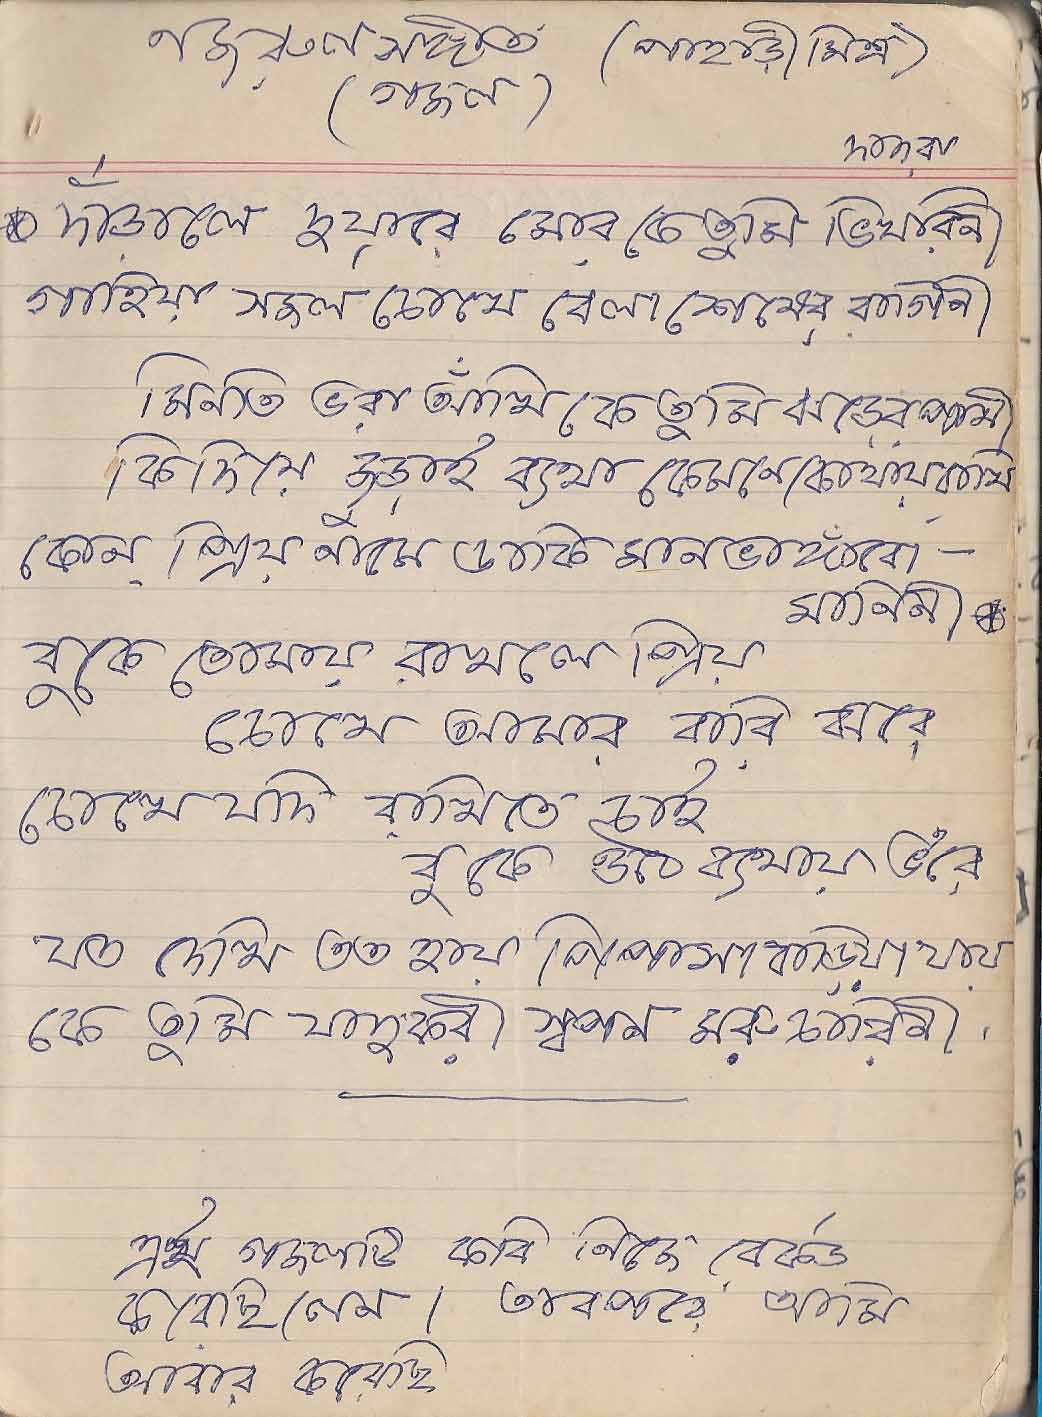 নজরুল সঙ্গীত (পাহাড়ী মিশ্র)
(গজল)
দাদরা
দাঁড়ালে দুয়ারে মোর কে তুমি ভিখারিনী
গাহিয়া সজল চোখে বেলা শেষের রাগিনী
মিনতি ভরা আঁখি কে তুমি ঝড়ের পাখী
কি দিয়ে জুড়াই ব্যথা কেমনে কোথায় রাখি
কোন প্রিয় নামে ডাকি মান ভাঙ্গাবো —
মানিনী
বুকে তোমায় রাখলে প্রিয়
চোখে আমার বারি ঝরে
চোখে যদি রাখিতে চাই
বুকে উঠে ব্যথায় ভঁরে
যত দেখি তত হায় পিপাসা বাড়িয়া যায়
কে তুমি যাদুকরী স্বপন মরু চারিনী।
এই গজলটি কবি নিজে রেকর্ড
করেছিলেন। তারপরে আমি
আবার করেছি